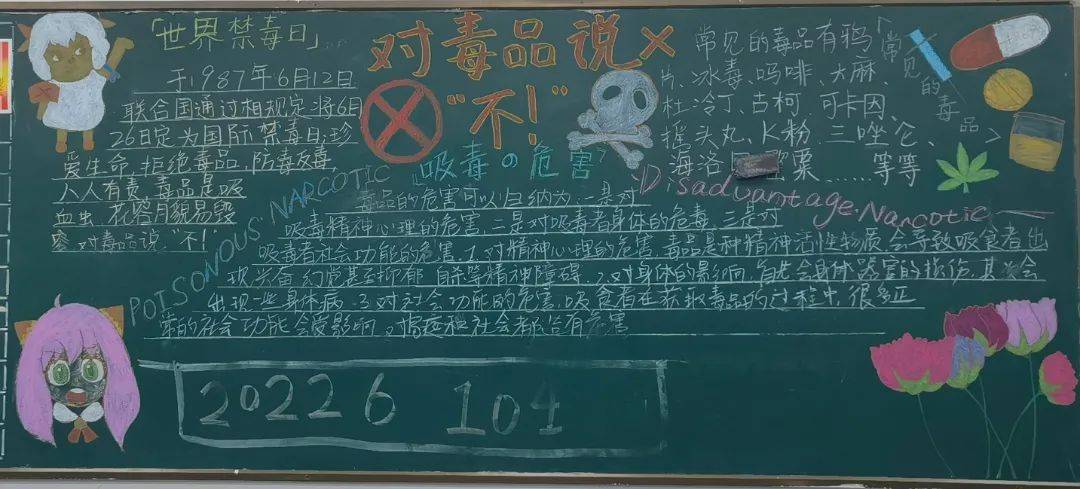 「世界禁毒日」
于1987年6月12日
联合国通过相规定将6月
26日定为国际禁毒日,珍
爱生命,拒绝毒品,防毒反毒
人人有责,毒品是吸
血虫,花容月貌易毁
容,对毒品说,"不!"
对毒品说
"不!"
常见的毒品有鸦
片、冰毒、吗啡、大麻
杜冷丁、古柯、可卡因、
摇头丸、K粉、三唑仑、
海洛 罂粟……等等
「常见的毒品>
吸毒の危害
POISONOUS NARCOTIC
Disadvantage.Narcotic
毒品的危害可以归纳为:一是对
吸毒精神心理的危害,二是对吸毒者身体的危毒,三是对
吸毒者社会功能的危害.1.对精神心理的危害,毒品是种精神活性物质,会导致吸食者出
现兴奋、幻觉甚至抑郁、自杀等精神障碍.2.对身体的影响, 会身体器官的损伤,其次会
出现一些身体病.3.对社会功能的危害,吸食者在获取毒品的过程中,很多正
常的社会功能会受影响。 和社会都会有危害
2022 6 104